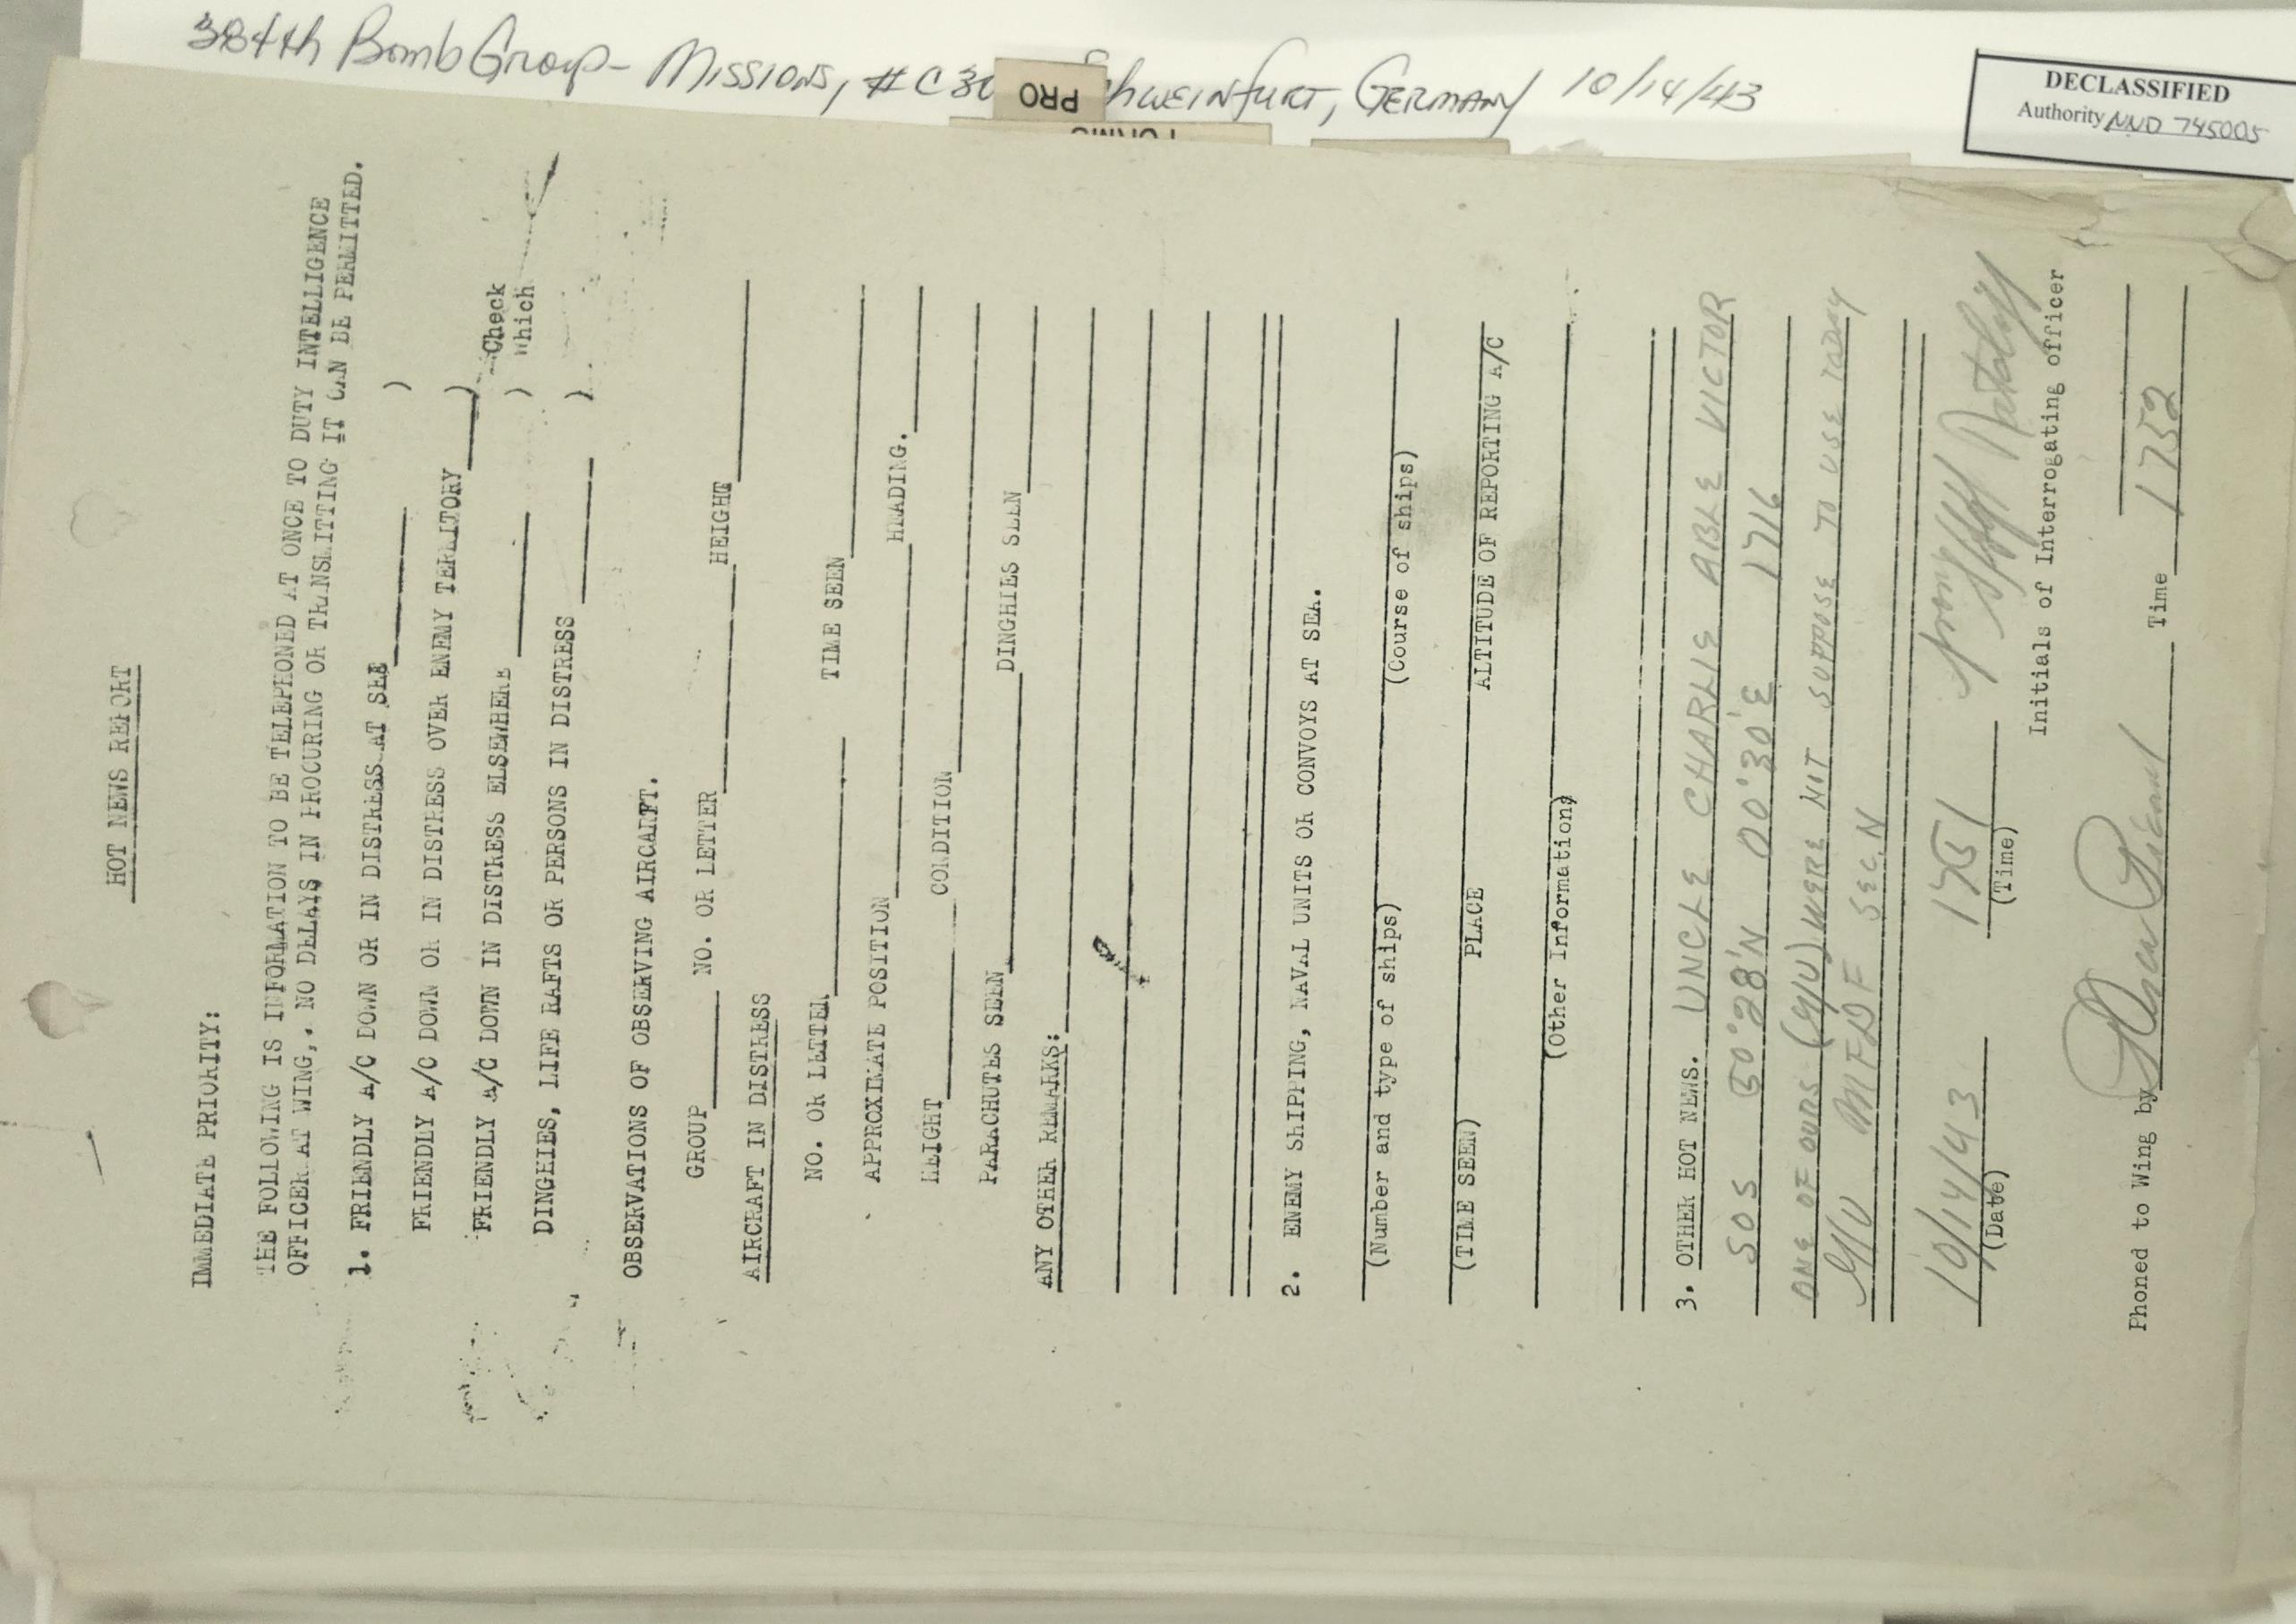 384th Bomb Group - Missions, #C30 Schweinfurt, Germany 10/14/43
PRO
DECLASSIFIED
Authority NND 745005
HOT NEWS REPORT
IMMEDIATE PRIORITY:
THE FOLLOWING IS INFORMATION TO BE TELEPHONED AT ONCE TO DUTY INTELLIGENCE
OFFICER AT WING,. NO DELAYS IN PROCURING OR TRANSMITTING IT CAN BE PERMITTED.
1. FRIENDLY A/C DOWN OR IN DISTRESS AT SEA )
FRIENDLY A/C DOWN OR IN DISTRESS OVER ENEMY TERRITORY ) Check
FRIENDLY A/C DOWN IN DISTRESS ELSEWHERE ) which
DINGHIES, LIFE RAFTS OR PERSONS IN DISTRESS )
OBSERVATIONS OF OBSERVING AIRCARFT.
GROUP NO. OR LETTER HEIGHT
AIRCRAFT IN DISTRESS
NO. OR LETTER TIME SEEN
APPROXIMATE POSITION HEADING.
HEIGHT CONDITION
PARACHUTES SEEN DINGHIES SEEN
ANY OTHER REMARKS:
2. ENEMY SHIPPING, NAVAL UNITS OR CONVOYS AT SEA.
(Number and type of ships) (Course of ships)
(TIME SEEN) PLACE ALTITUDE OF REPORTING A/C
(Other Information)
3. OTHER HOT NEWS. UNCLE CHARLIE ABLE VICTOR
SOS 50°28'N 00°30'E 1716
ONE OF OURS (G/U) WERE NOT SUPPOSE TO USE TODAY
G/U MFDF SEC. N
10/14/43 1751
(Date) (Time) Initials of Interrogating officer
Phoned to Wing by Time 1752